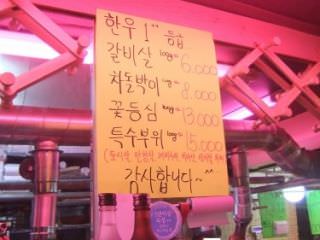 한우 1++ 등급
갈비살 100g 6.000
차돌박이 100g 8.000
꽃등심 100g 13.000
특수부위 100g 15.000
감사합니다~^^